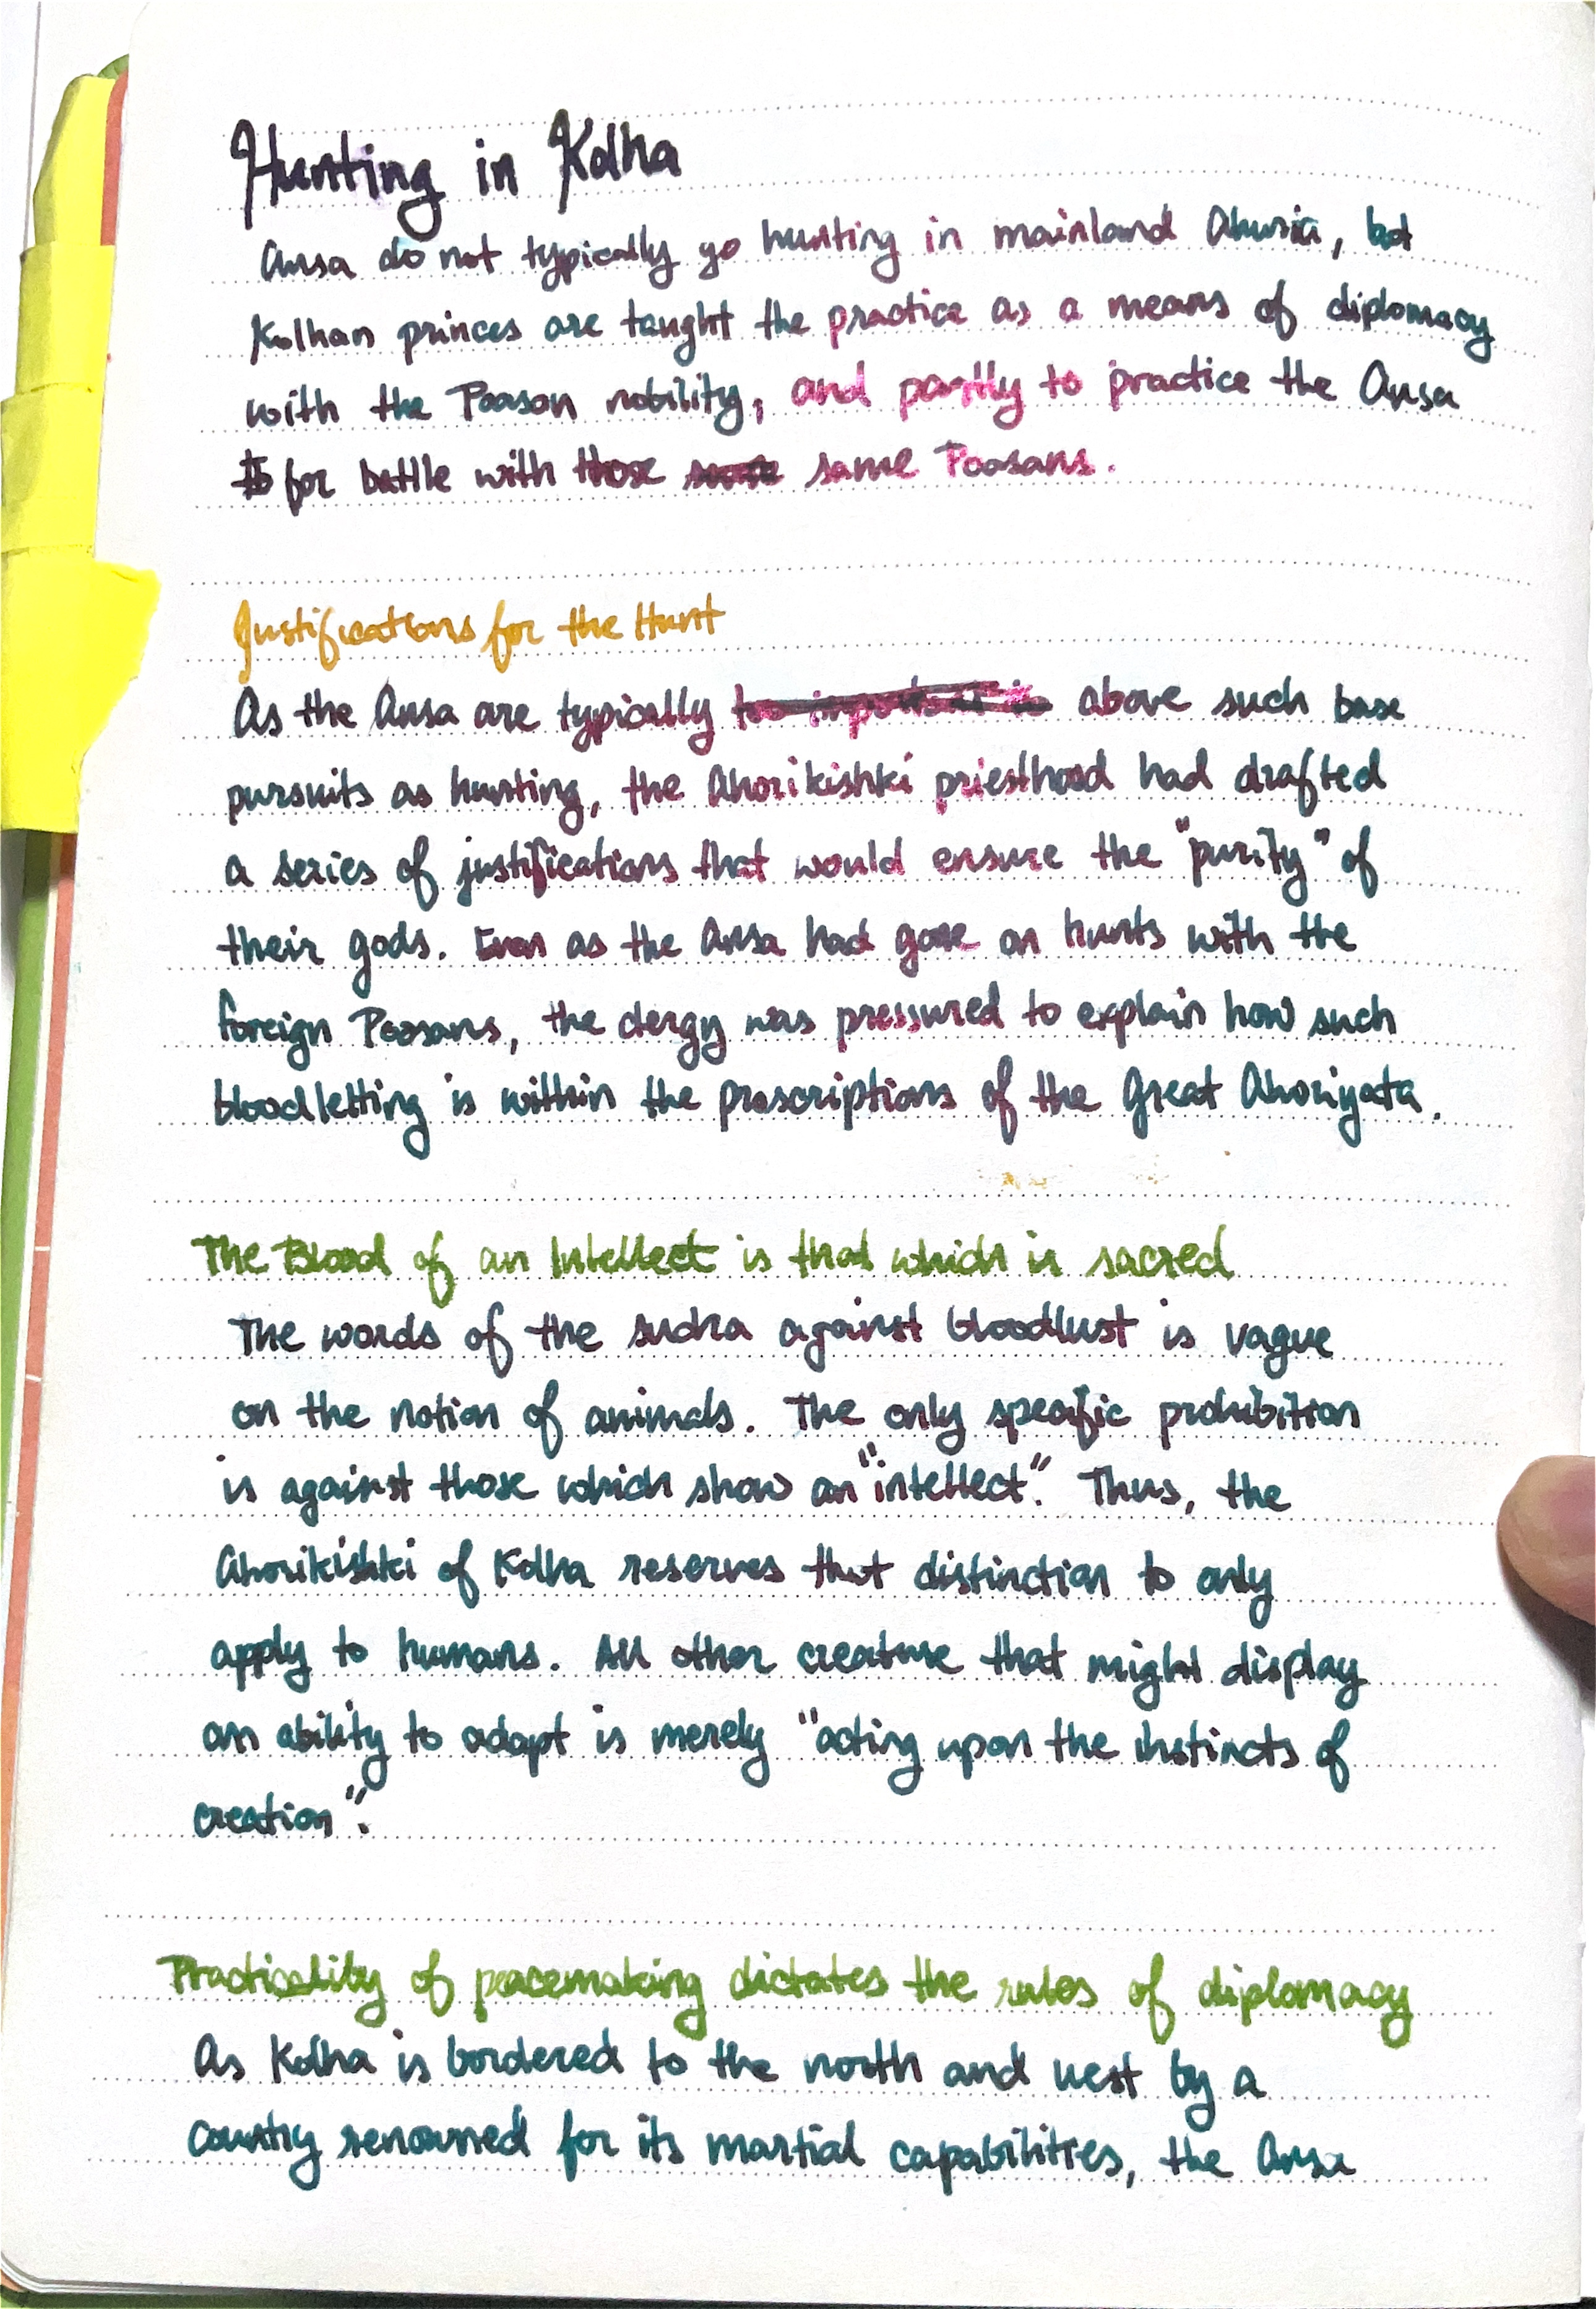 Hunting in Kolha
Ansa do not typically go hunting in mainland Ahuria, but
Kolhan princes are taught the practice as a means of diplomacy
with the Poosan nobility, and partly to practice the Ansa
for battle with those same Poosans.
Justifications for the Hunt
As the Ansa are typically above such base
pursuits as hunting, the Ahorikishki priesthood had drafted
a series of justifications that would ensure the "purity" of
their gods. Even as the Ansa had gone on hunts with the
foreign Poosans, the clergy was pressured to explain how such
bloodletting is within the prescriptions of the Great Ahoriyata.
The Blood of an Intellect is that which is sacred
The words of the sudra against bloodlust is vague
on the notion of animals. The only specific prohibition
is against those which show an "intellect". Thus, the
Ahorikishki of Kolha reserves that distinction to only
apply to humans. All other creature that might display
an ability to adapt is merely "acting upon the instincts of
creation".
Practicality of peacemaking dictates the rules of diplomacy
As Kolha is bordered to the north and west by a
country renowned for its martial capabilities, the Ansa